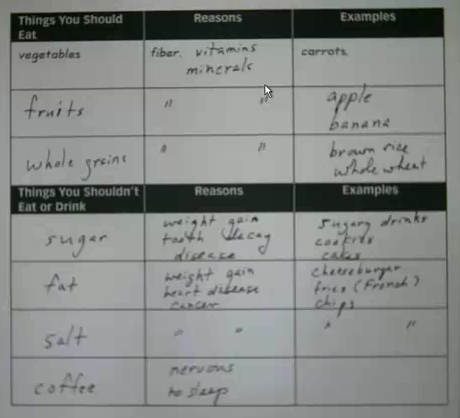 Things You Should Eat Reasons Examples
vegetables fiber. vitamins minerals carrots.
fruits " " apple banana
whole grains " " brown rice whole wheat
Things You Shouldn't Eat or Drink Reasons Examples
sugar weight gain tooth decay disease sugary drinks cookies cakes
fat weight gain heart disease cancer cheeseburger fries (French) chips
salt " " " "
coffee nervous no sleep